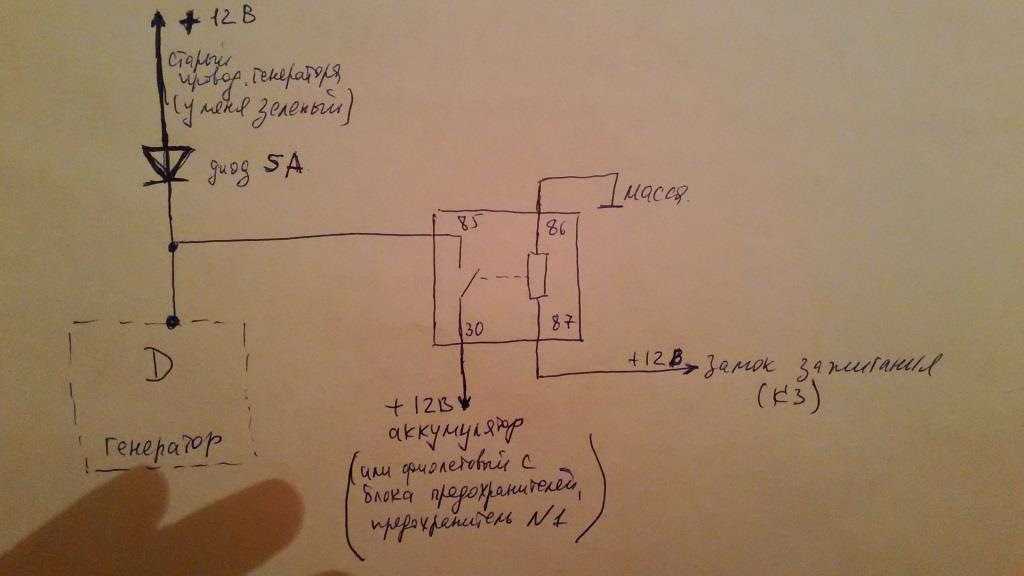 + 12В
Старый
провод генератора
(у меня зеленый)
диод 5А
масса
85
86
30
87
D
генератор
+12В
замок зажигания
(КЗ)
+12В
аккумулятор
(или фиолетовый с
блока предохранителей,
предохранитель N1)